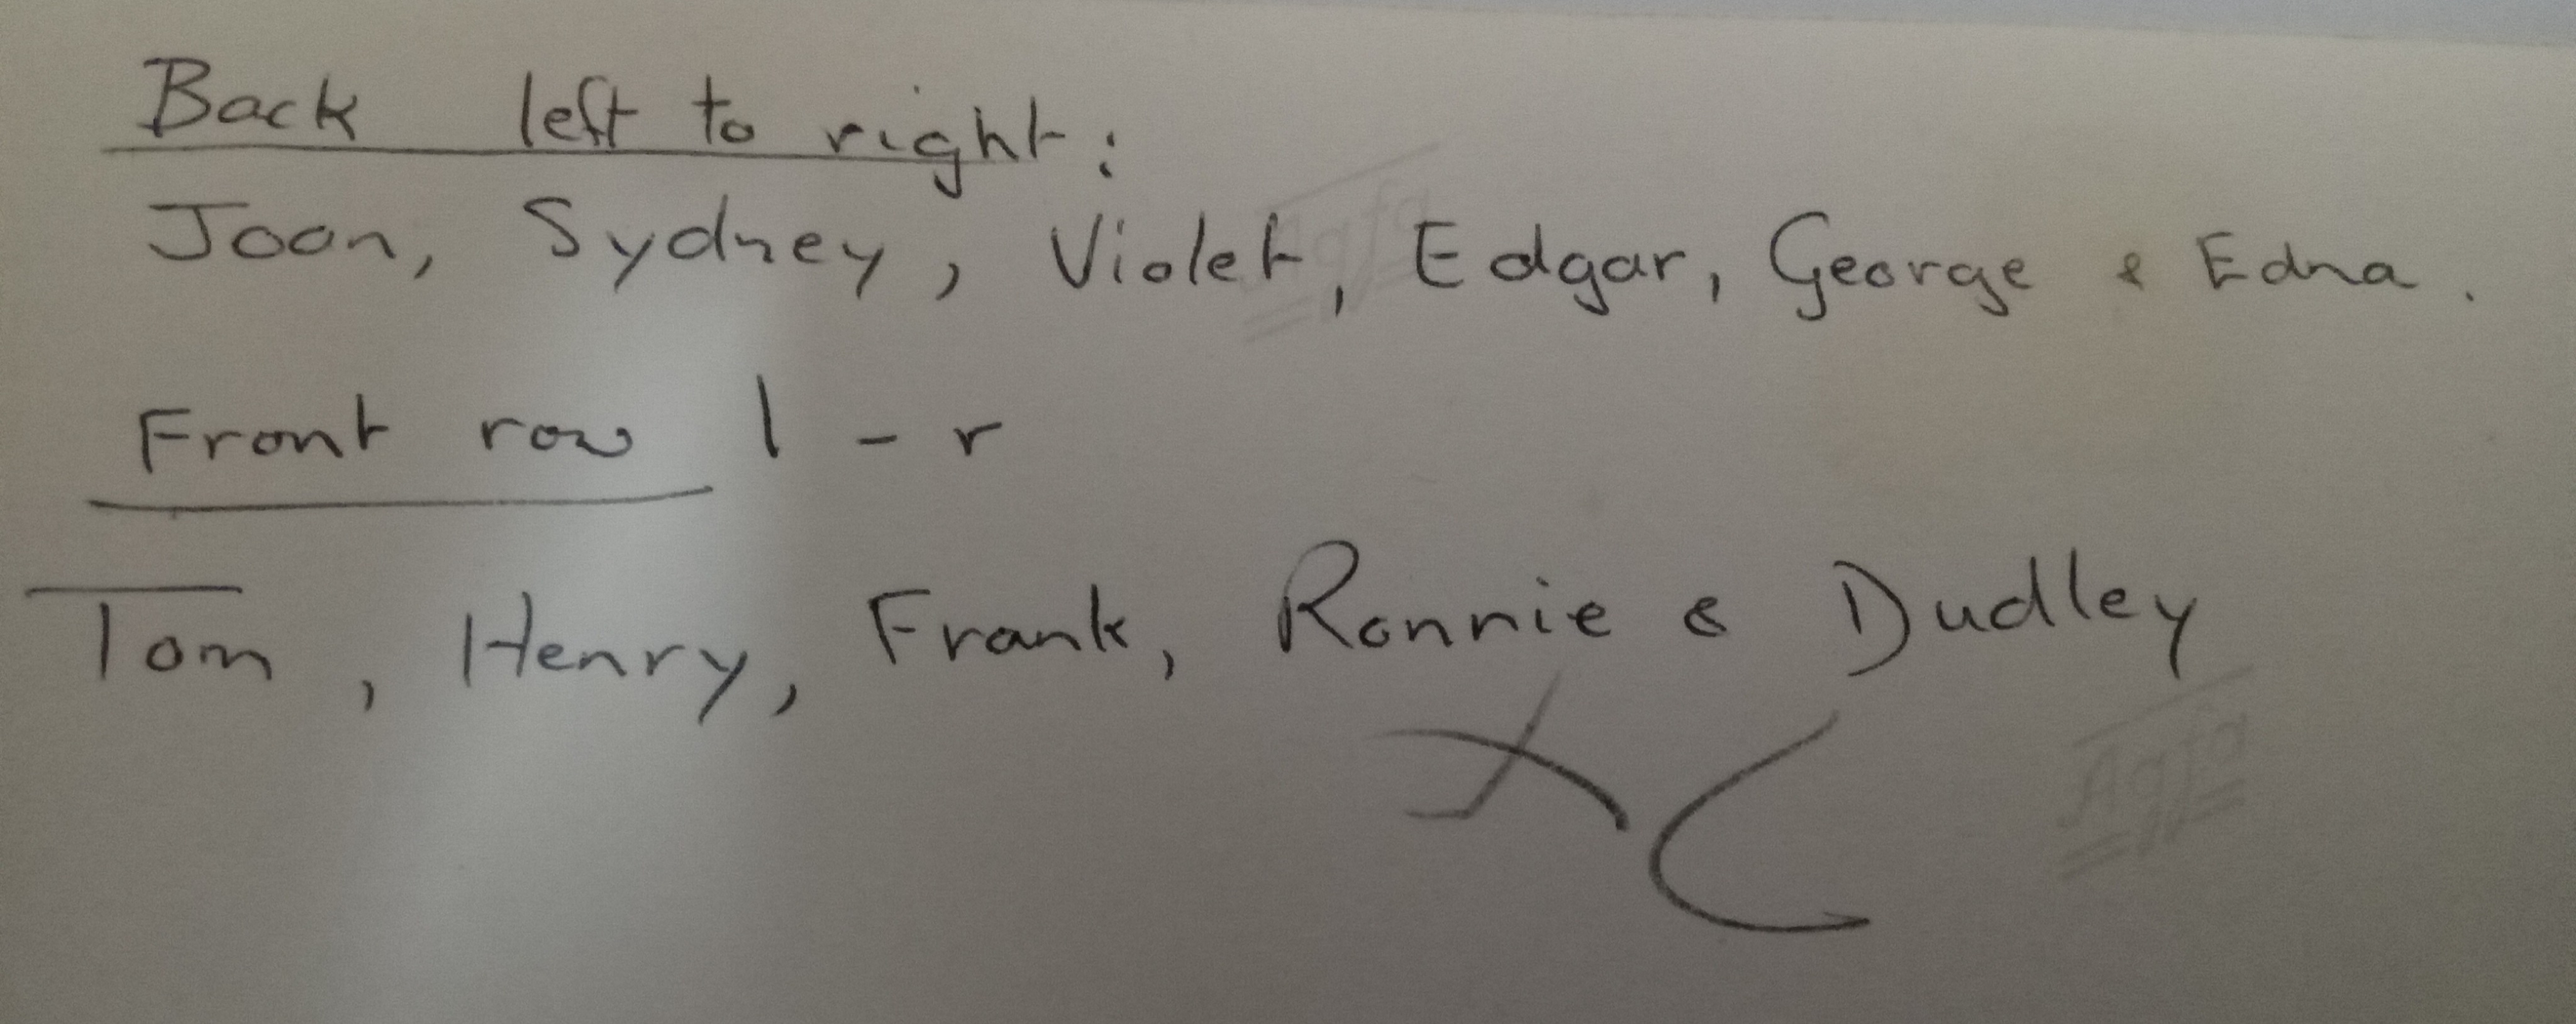 Back left to right:
Joan, Sydney, Violet, Edgar, George & Edna.
Front row l - r
Tom, Henry, Frank, Ronnie & Dudley